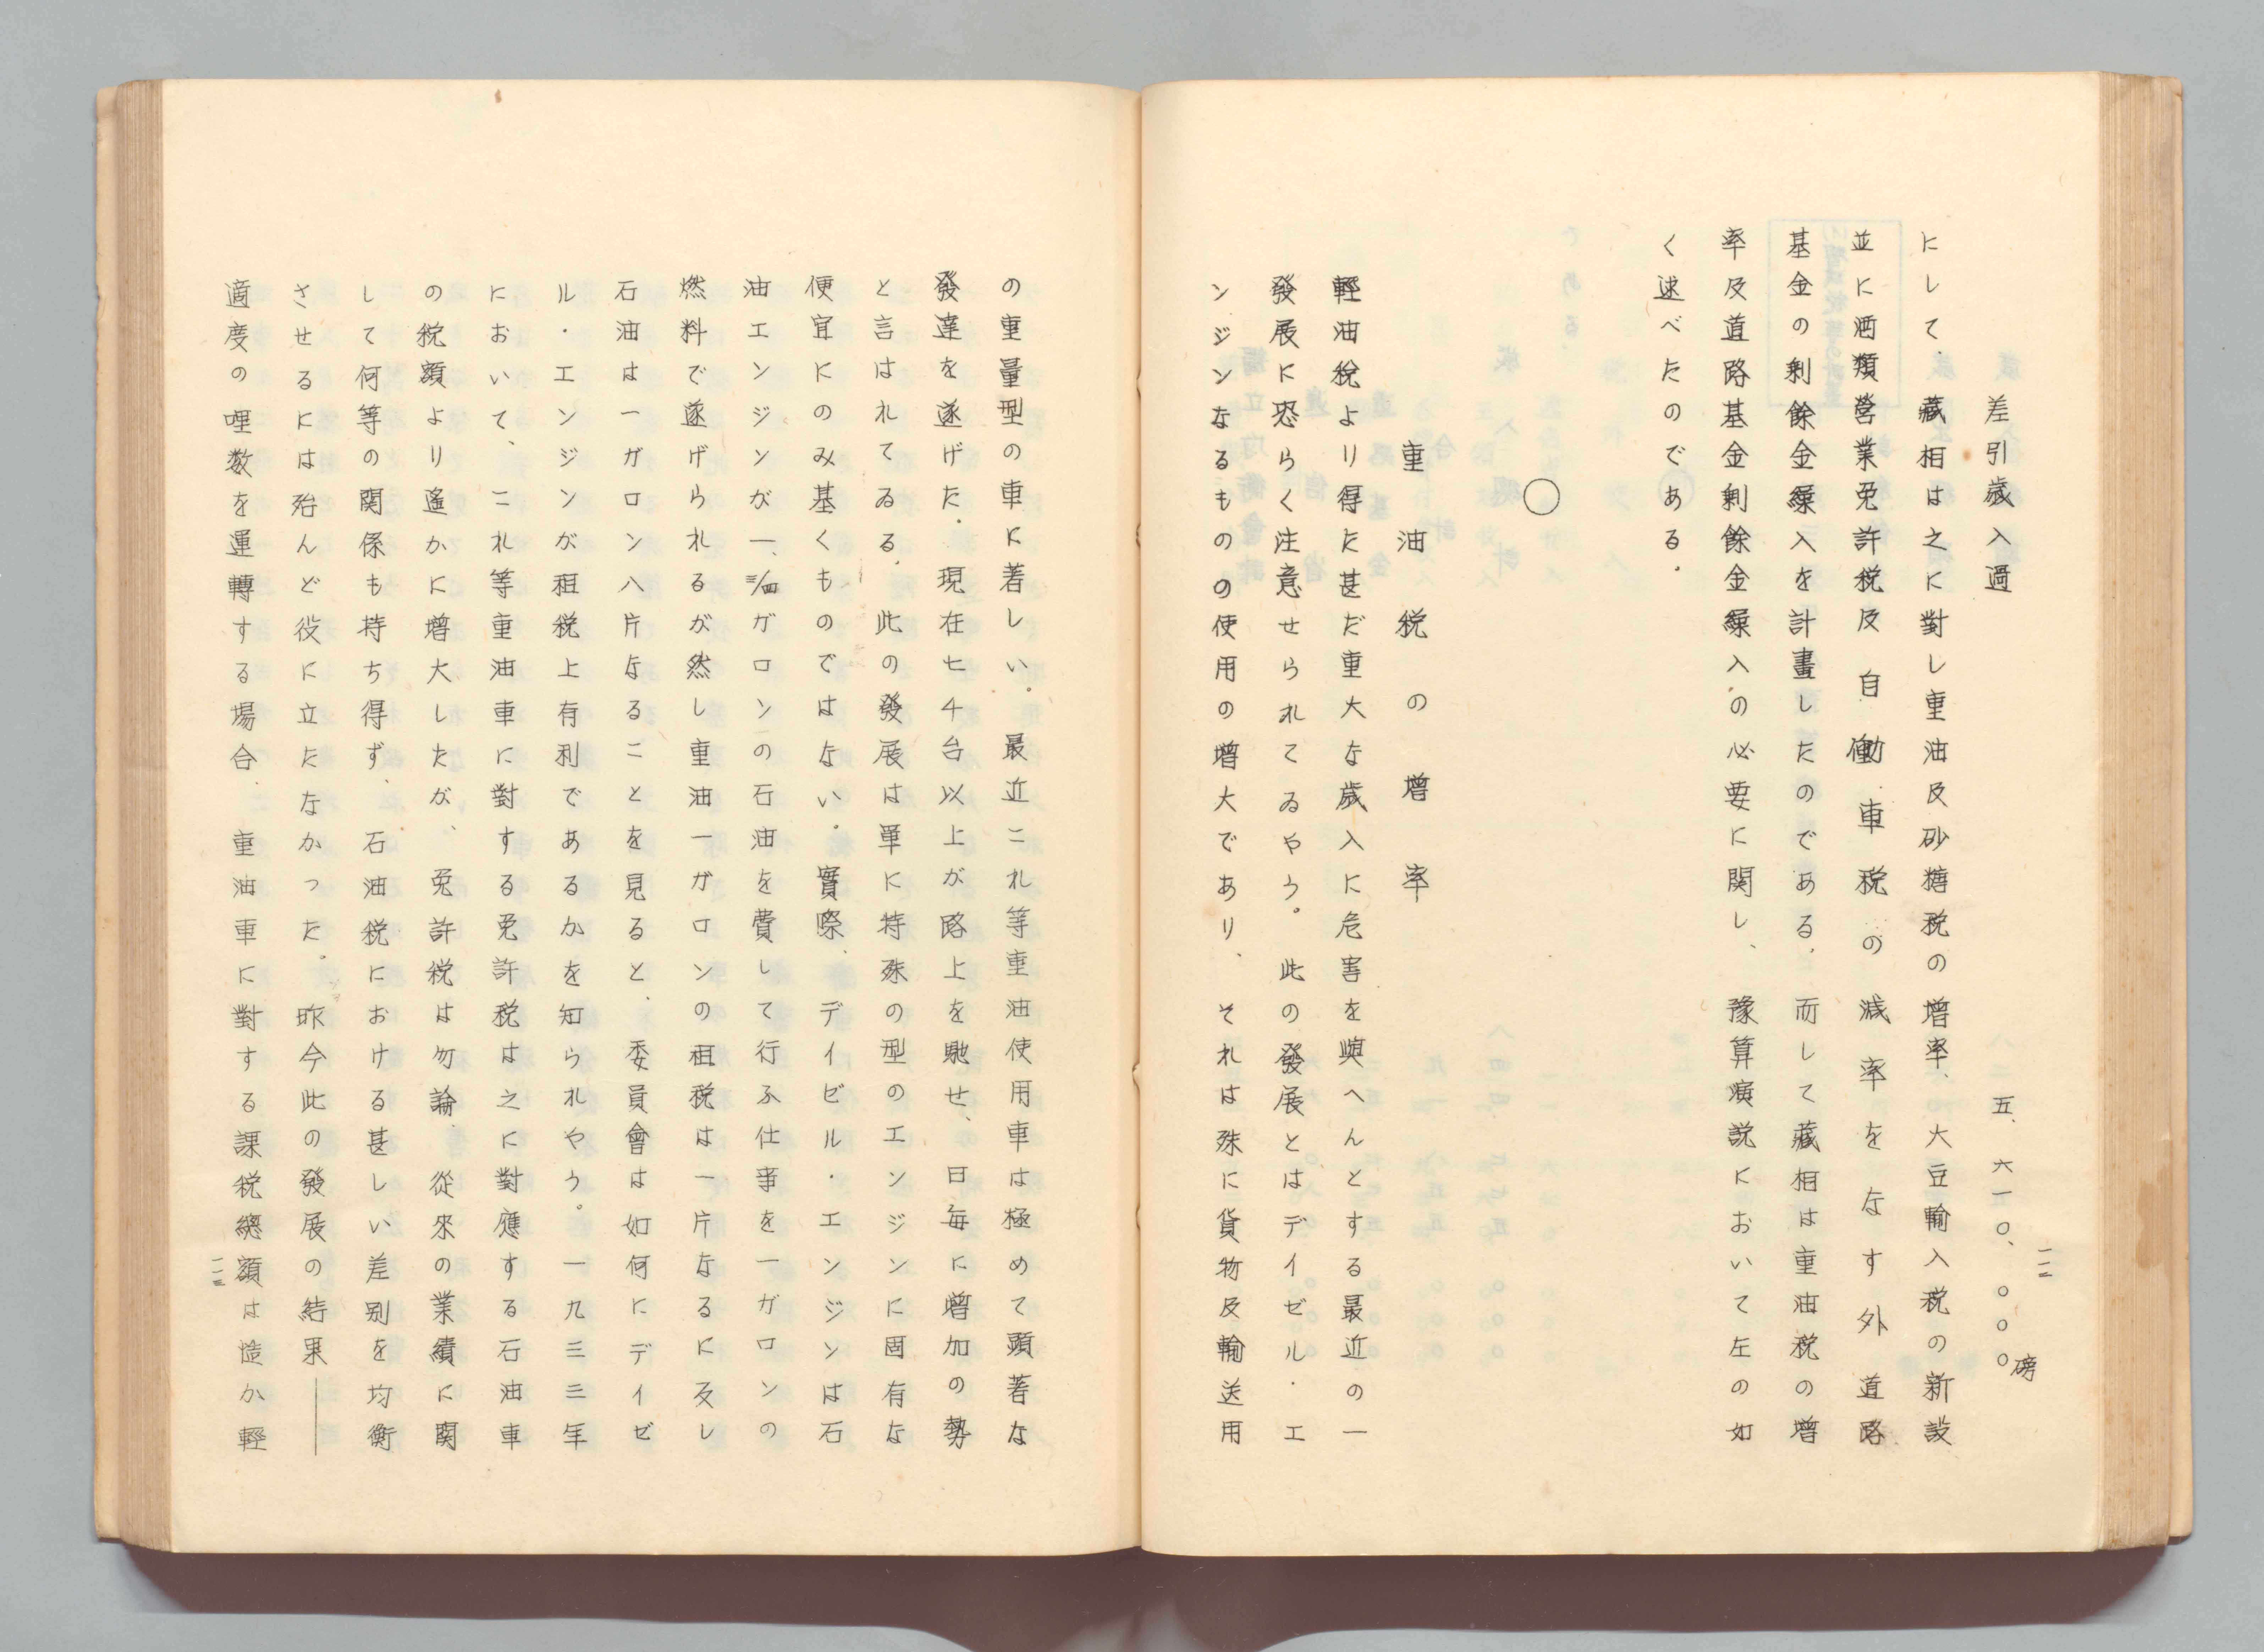 一一二
差引歳入過　五、六一〇、〇〇〇磅
にして、藏相は之に對し重油及砂糖税の增率、大豆輸入税の新設
並に酒類營業免許税及自働車税の減率をなす外道路
基金の剰餘金繰入を計畫したのである、而して藏相は重油税の增
率及道路基金剰餘金繰入の必要に関し、豫算演説において左の如
く述べたのである。
○
重油税の增率
輕油税より得た甚だ重大な歳入に危害を與へんとする最近の一
發展に恐らく注意せられてゐやう。此の發展とはデイゼル・エ
ンジンなるものの使用の增大であり、それは殊に貨物及輸送用
の重量型の車に著しい。最近これ等重油使用車は極めて顕著な
發達を遂げた。現在七千台以上が路上を馳せ、日毎に增加の勢
と言はれてゐる。此の發展は單に特殊の型のエンジンに固有な
便宜にのみ基くものではない。實際、デイゼル・エンジンは石
油エンジンが一、三/四ガロンの石油を費して行ふ仕事を一ガロンの
燃料で遂げられるが然し重油一ガロンの租税は一片なるに反し
石油は一ガロン八片なることを見ると、委員會は如何にデイゼ
ル・エンジンが租税上有利であるかを知られやう。一九三三年
において、これ等重油車に對する免許税は之に對應する石油車
の税額より遙かに增大したが、免許税は勿論、從來の業績に関
して何等の関係も持ち得ず、石油税における甚しい差別を均衡
させるには殆んど役に立たなかった。昨今此の發展の結果──
適度の哩数を運轉する場合、重油車に對する課税總額は遙か輕
一一三